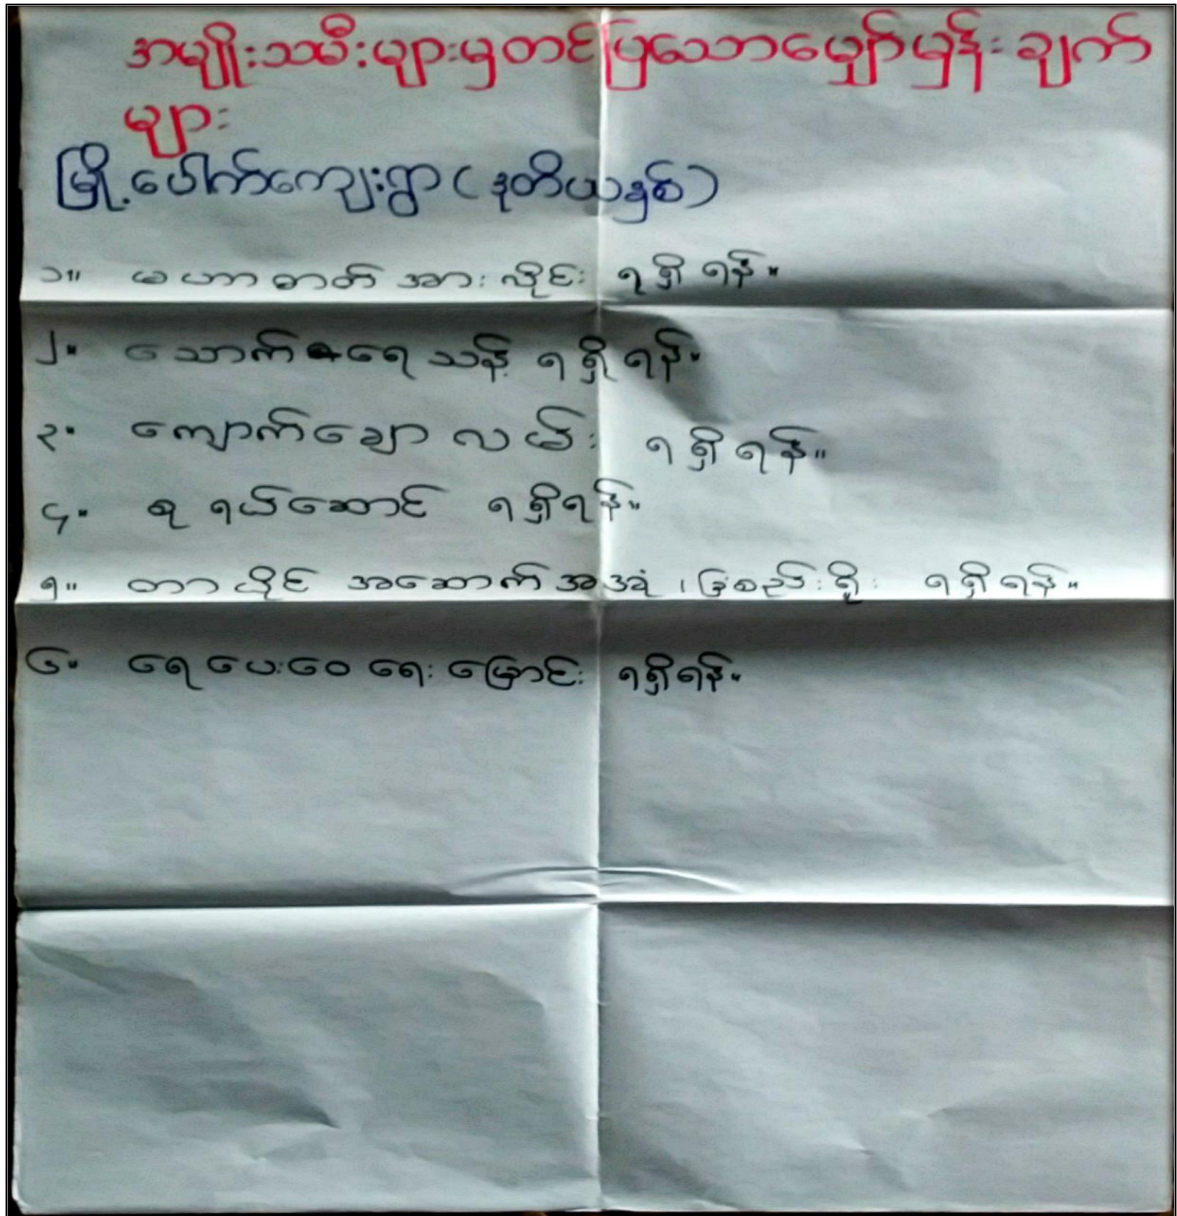 အမျိုးသမီးများမှတင်ပြသောမျှော်မှန်းချက်
များ
မြို့ပေါက်ကျေးရွာ (ဒုတိယနှစ်)
၁။ မဟာဓာတ်အားလိုင်း ရရှိရန်။
၂။ သောက်ရေသန့် ရရှိရန်။
၃။ ကျောက်ချောလမ်း ရရှိရန်။
၄။ ရုယ်ဆောင် ရရှိရန်။
၅။ တာပိုင် အဆောက်အအုံ၊ ခြံစည်းရိုး ရရှိရန်။
၆။ ရေပေးဝေရေးမြောင်း ရရှိရန်။